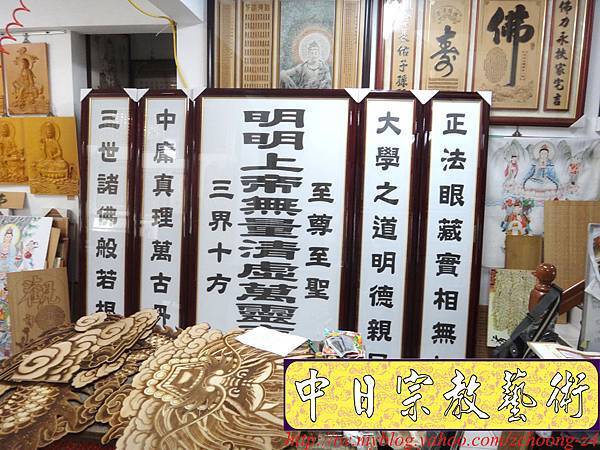 佛力永扶家宅吉
佛
壽
佑子孫
正法眼藏實相無
大學之道明德親
至尊至聖
明明上帝無量清虛萬靈
三界十方
中庸真理萬古
三世諸佛般若根
觀
中日宗教藝術
http://tw.myblog.yahoo.com/zchoong-z4